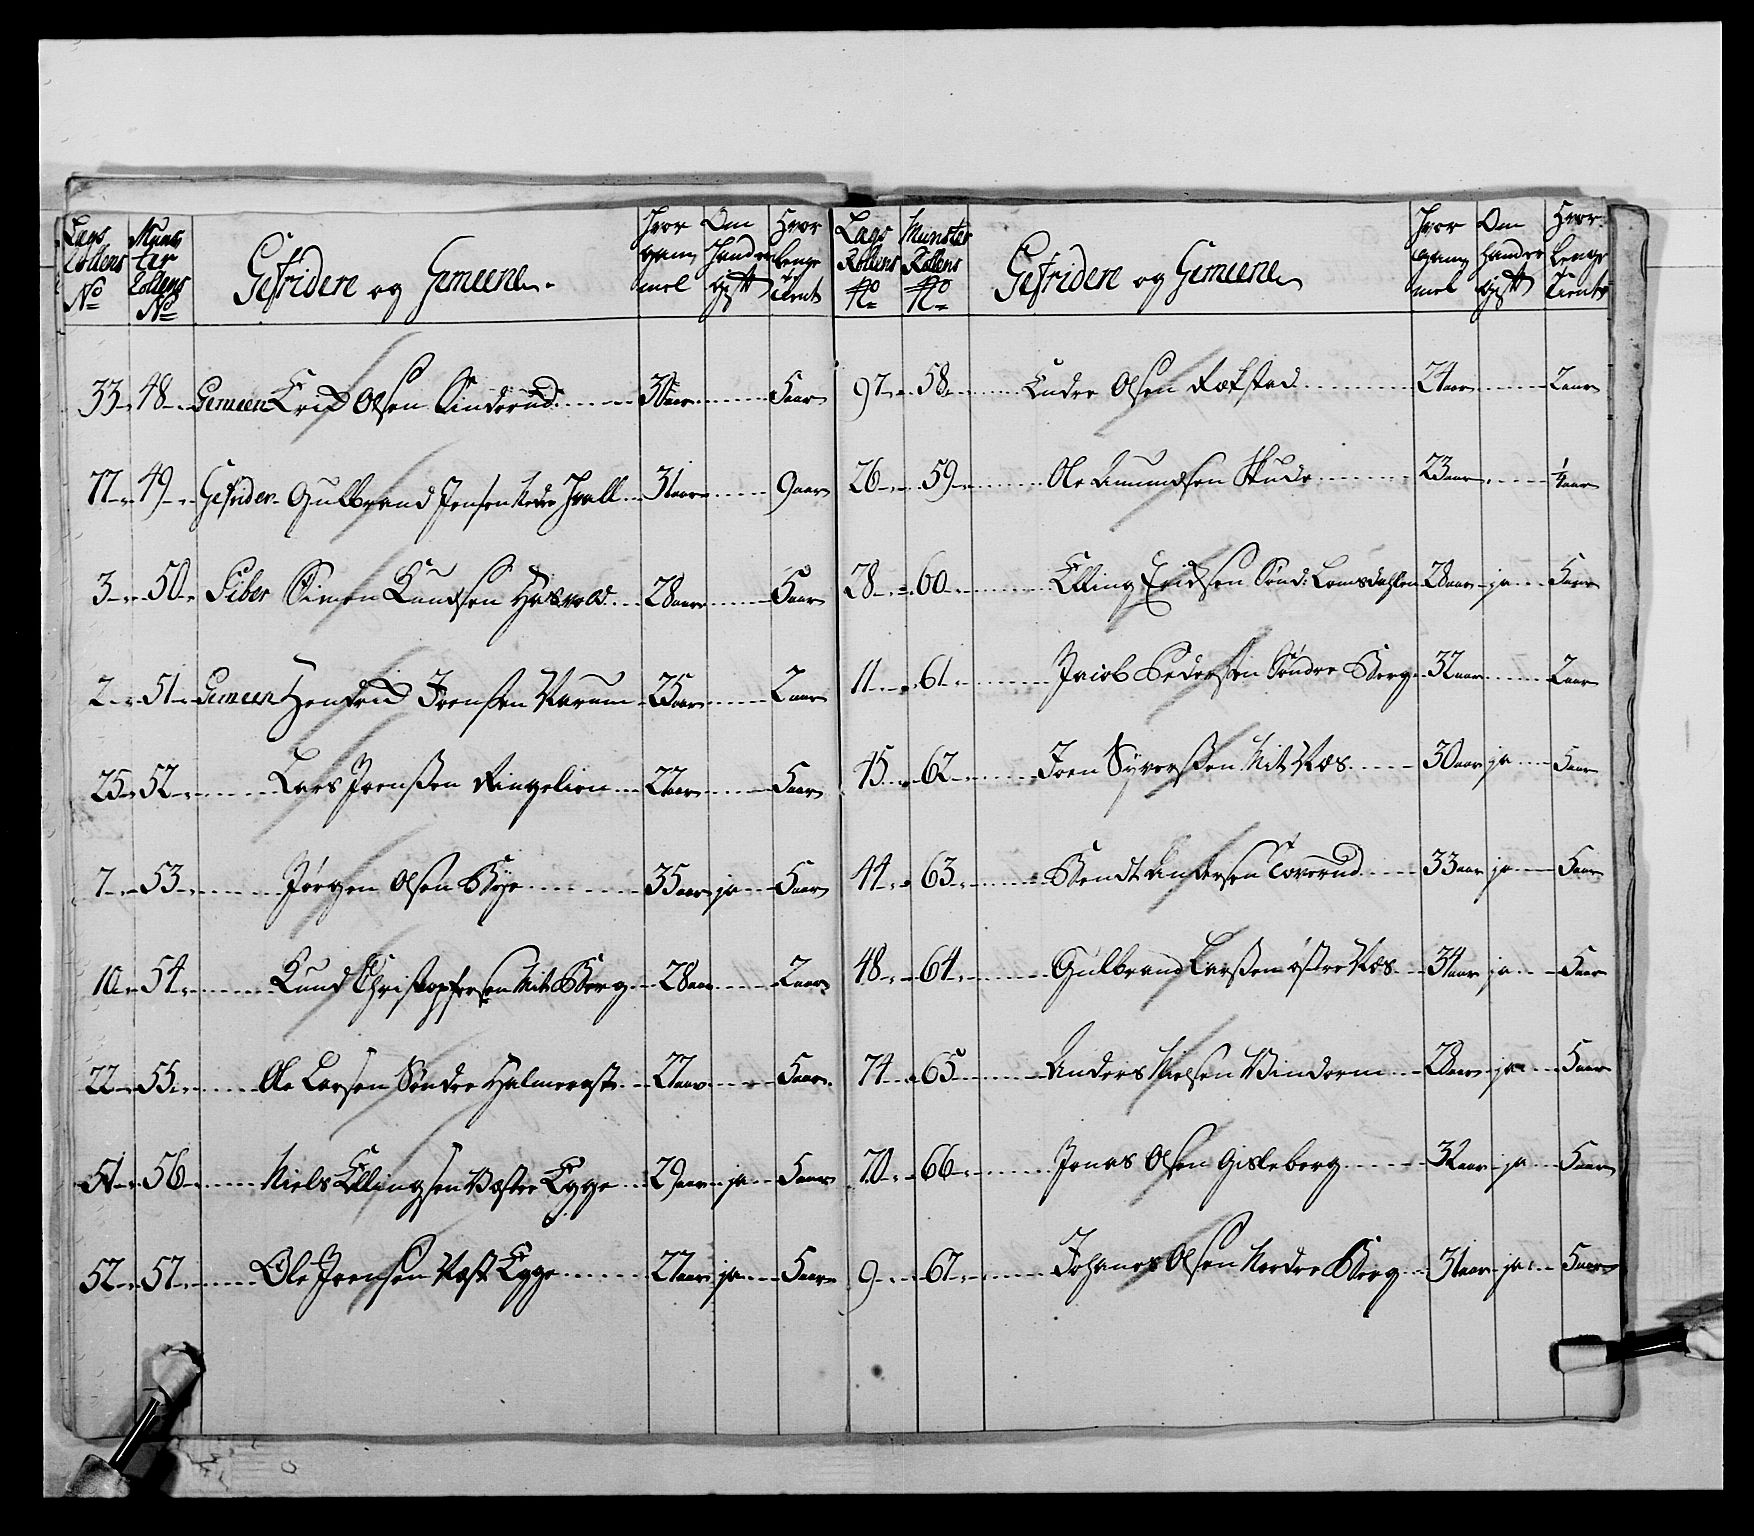 Lags Rollens No
Munster Rollens No
Gefridere og Gemeene
Hvor gammel
Om Hand er gift
Hvor Lenge tient
33 48 Gemeen Erich Olsen Sinderud 30 aar 5 aar
77 49 Gefrider Gulbrand Jensen Nedre Hvall 31 aar 9 aar
3 50 Piber Simen Knudsen Hasvold 28 aar 5 aar
2 51 Gemeen Hendrich Joensen 25 aar 2 aar
25 52 Lars Joenssen Ringelien 22 aar 5 aar
7 53 Jørgen Olsen Bye 35 aar ja 5 aar
10 54 Knud Christophersen Mit Berg 28 aar 2 aar
22 55 Ole Larsen Søndre 27 aar 5 aar
51 56 Niels Ellingsen Væstre Egge 29 aar ja 5 aar
52 57 Ole Joensen Væst Egge 27 aar ja 5 aar
Lags Rollens No
Munster Rollens No
Gefridere og Gemeene
Hvor gammel
Om Hand er gift
Hvor Lenge tient
97 58 Endre Olsen Rækstad 24 aar 2 aar
26 59 Ole Amundsen 23 aar ¼ aar
28 60 Elling Erichsen Sønd: Lomsdahlen 28 aar ja 5 aar
11 61 Jacob Pedersen Søndre Berg 32 aar 2 aar
45 62 Joen Syverssen Mit Næs 30 aar ja 5 aar
44 63 Bendt Andersen 33 aar ja 5 aar
48 64 Gulbrand Larssen østre Næs 34 aar ja 5 aar
74 65 Anders Nielsen Vinderen 28 aar ja 5 aar
70 66 Jonas Olsen Gisleberg 32 aar ja 5 aar
9 67 Johanes Olsen Nordre Berg 31 aar ja 5 aar